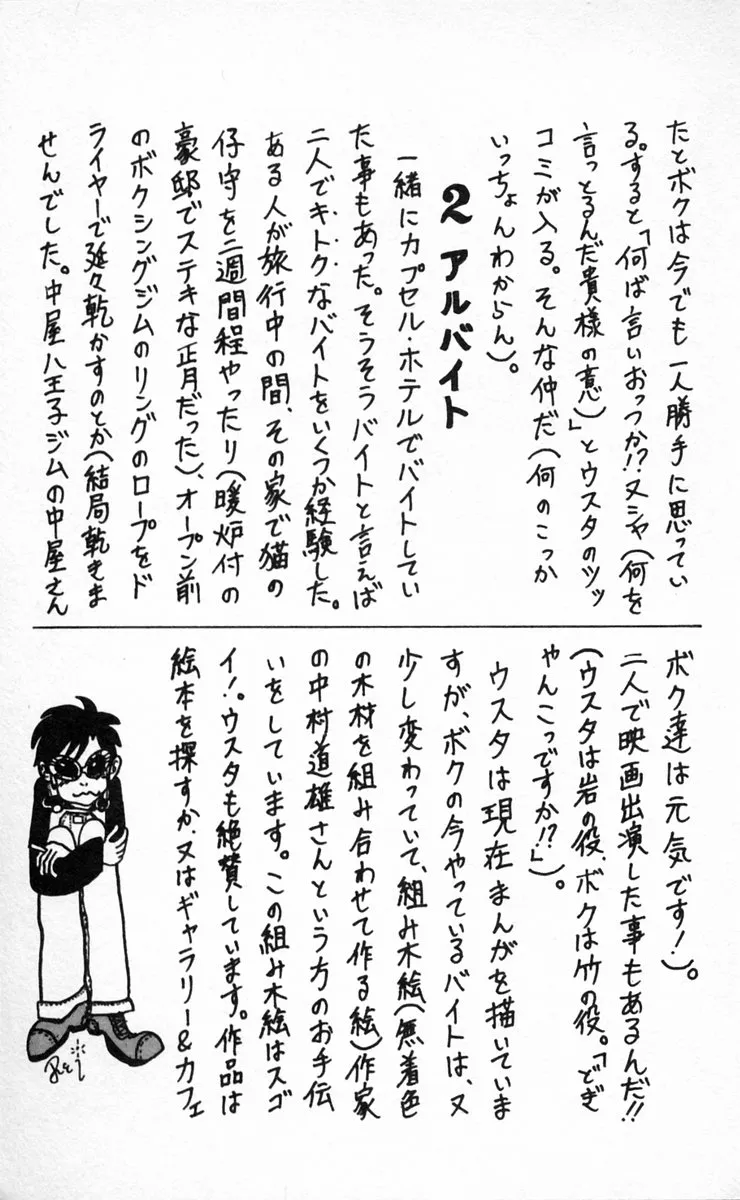 たとボクは今でも一人勝手に思ってい
る。すると「何ば言いおっつか!?ヌシャ(何を
言っとるんだ貴様の意)」とウスタのツッ
コミが入る。そんな仲だ(何のこっか
いっちょんわからん)。
2 アルバイト
一緒にカプセル・ホテルでバイトしてい
た事もあった。そうそうバイトと言えば
二人でキトクなバイトをいくつか経験した。
ある人が旅行中の間、その家で猫の
仔守を二週間程やったり(暖炉付の
豪邸でステキな正月だった)、オープン前
のボクシングジムのリングのロープをド
ライヤーで延々乾かすのとか(結局乾きま
せんでした。中屋八王子ジムの中屋さん
ボク達は元気です!)。
二人で映画出演した事もあるんだ!!
(ウスタは岩の役、ボクは竹の役。「どぎ
ゃんこっですか!?」)。
ウスタは現在まんがを描いていま
すが、ボクの今やっているバイトは、又
少し変わっていて、組み木絵(無着色
の木材を組み合わせて作る絵)作家
の中村道雄さんという方のお手伝
いをしています。この組み木絵はスゴ
イ!。ウスタも絶賛しています。作品は
絵本を探すか、又はギャラリー&カフェ